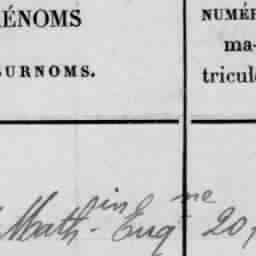 ÉNOMS
SURNOMS.
NUMÉR
ma-
tricul
Math.in Eug.ne 20